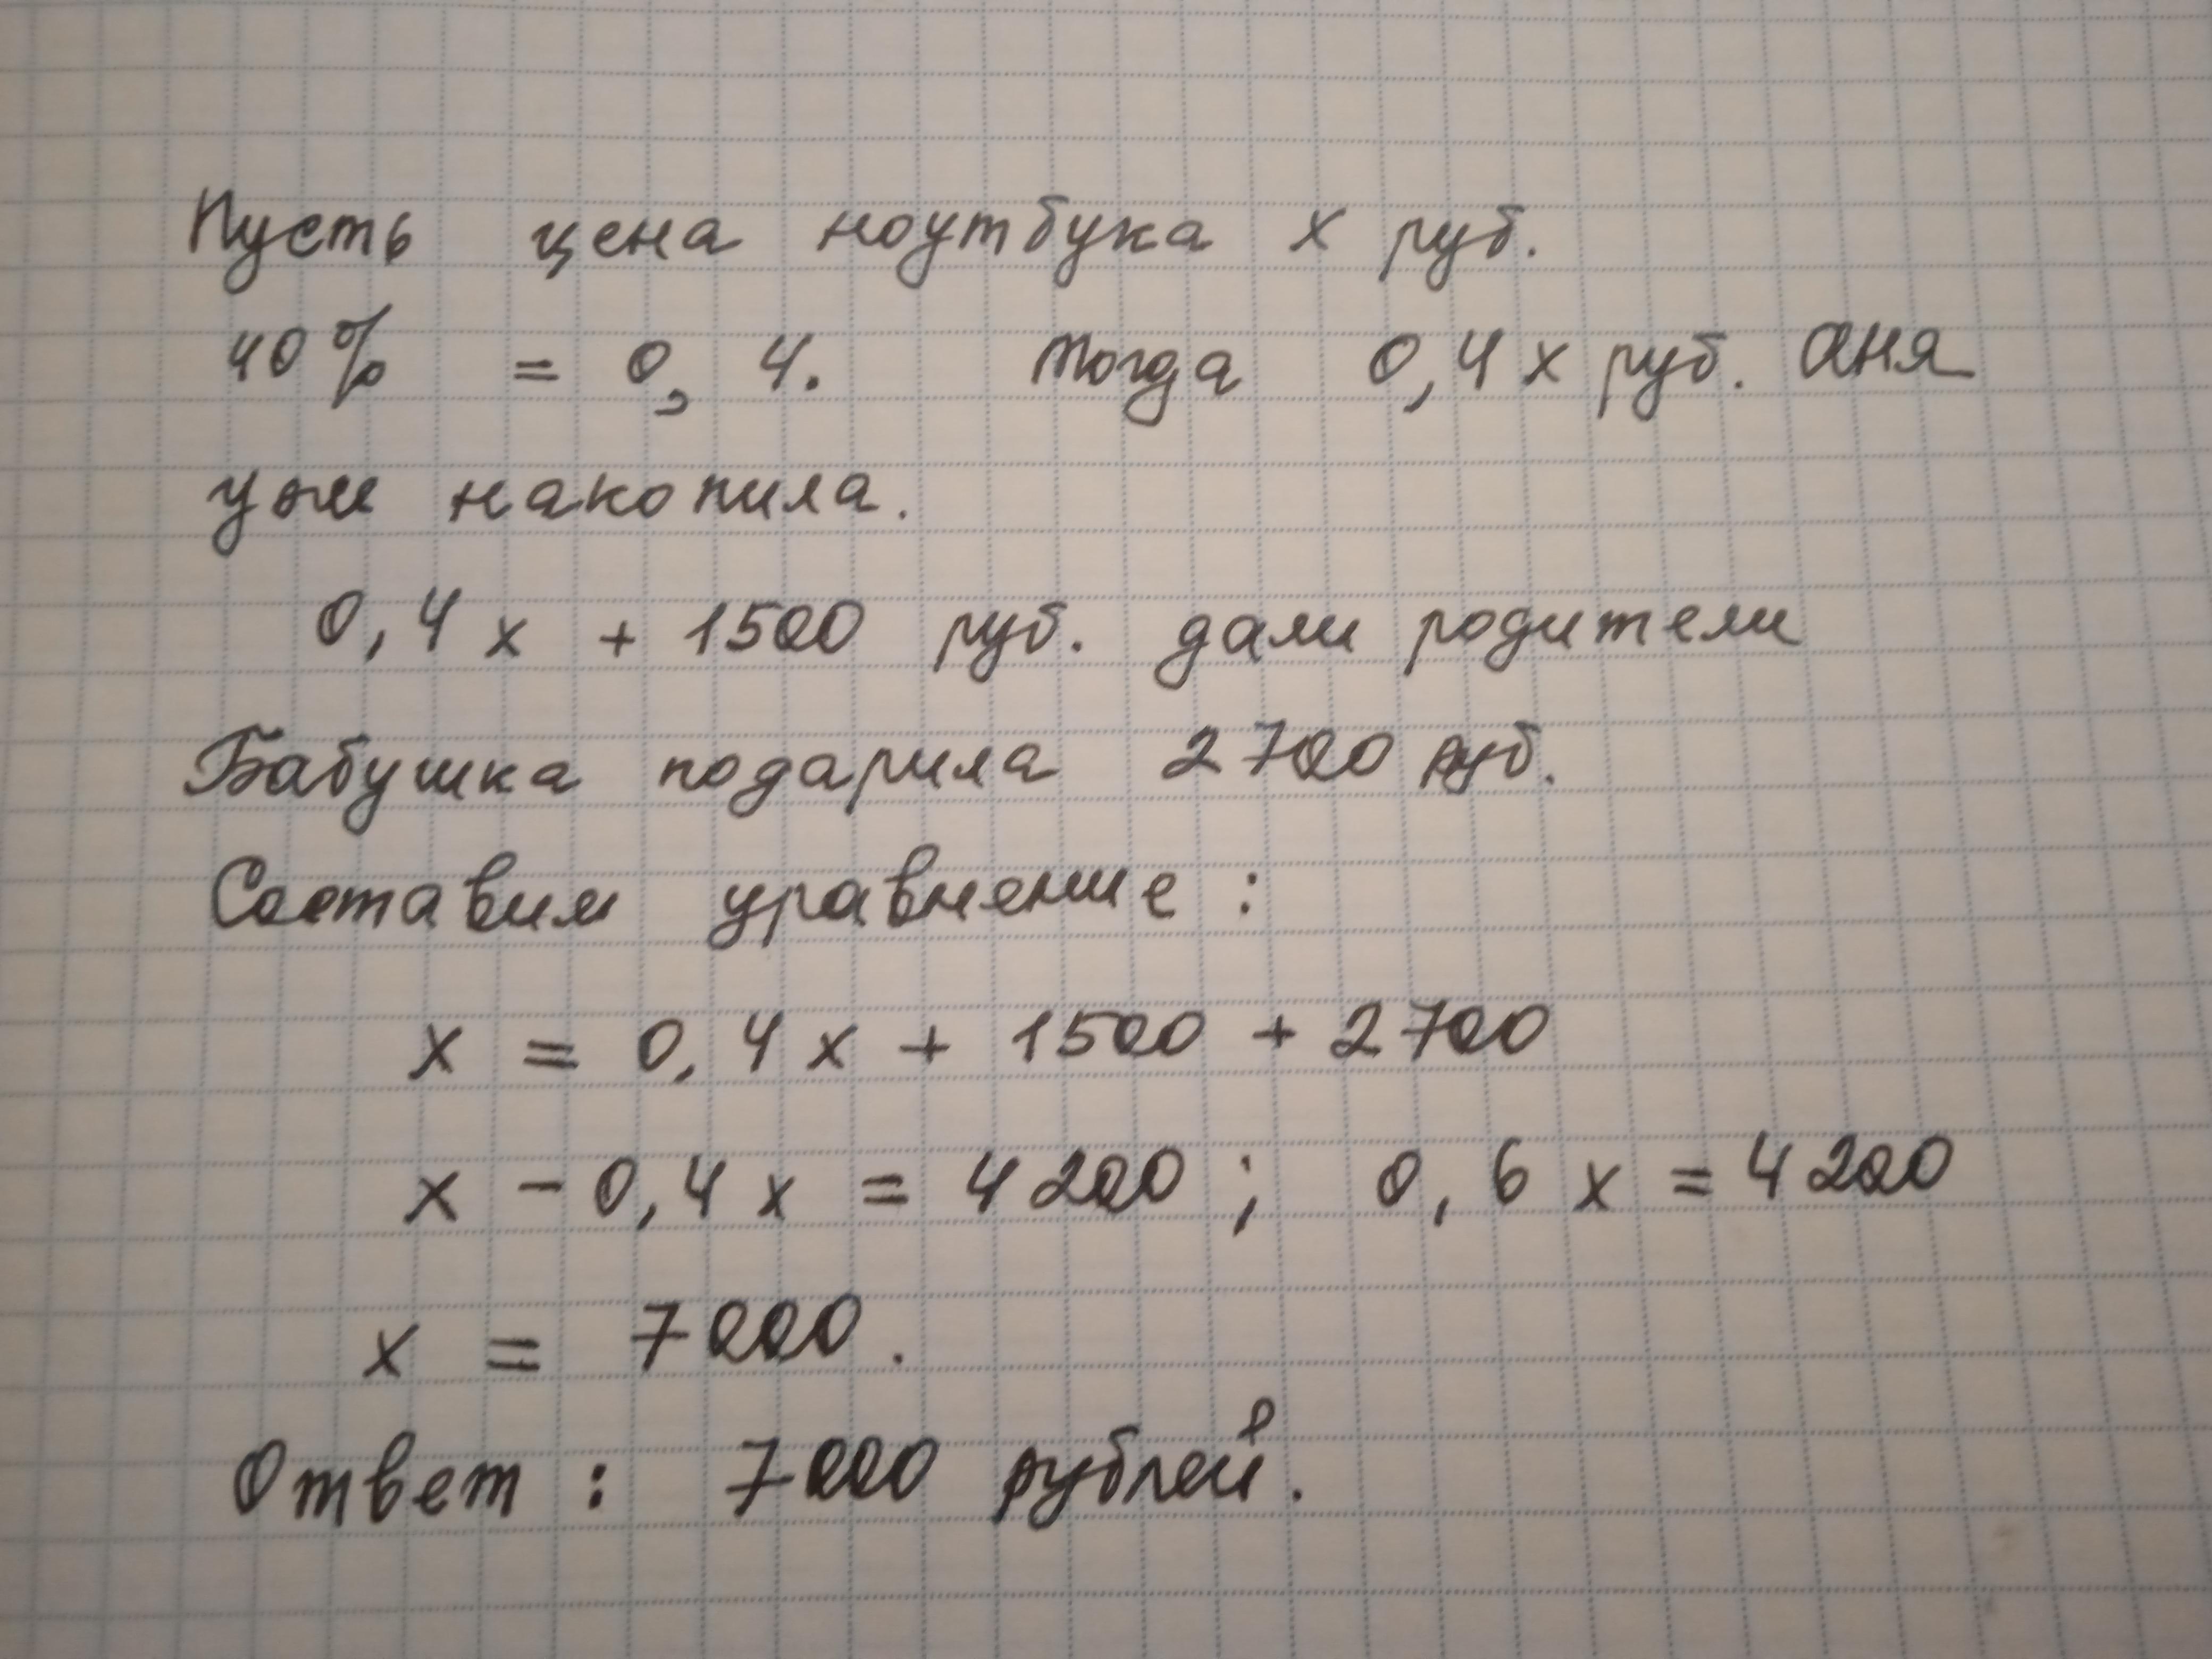 Пусть цена ноутбука x руб.
40% = 0,4. Тогда 0,4x руб. Аня
уже накопила.
0,4x + 1500 руб. дали родители
Бабушка подарила 2700 руб.
Составим уравнение:
x = 0,4x + 1500 + 2700
x - 0,4x = 4200; 0,6x = 4200
x = 7000.
Ответ: 7000 рублей.